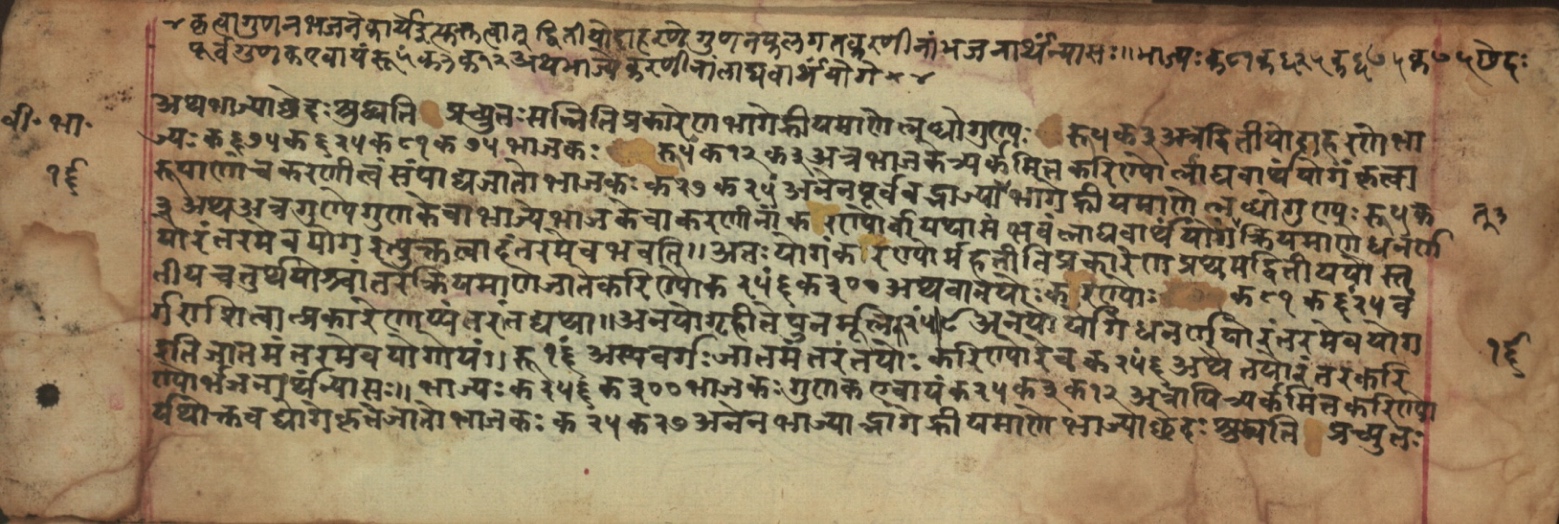 कृत्वा गुणनभजने कार्ये इत्युक्तत्वात् द्वितीयोदाहरणे गुणनफलगतकरणीनां भजनार्थं न्यासः॥ भाज्यः क ९ क ६२५ क ६७५ क ७५ छेदः
पूर्वगुणक एवायं रू ५ं क ३ क १२ अथ भाज्यकरणीनां लाघवार्थं योगे
अथ भाज्याच्छेदः शुद्ध्यति प्रच्युतः सन्निति प्रकारेण भागे ह्रीयमाणे लब्धो गुण्यः रू ५ क ३ अत्र द्वितीयोदाहरणे भा
वी॰ भा॰
ज्यः क ६७५ क ६२५ क ९१ क ७५ भाजकः रू ५ं क १२ क ३ अत्र भाजके त्र्यर्कमित करिण्यो र्लाघवार्थं योगं कृत्वा
१६
रूपाणां च करणीत्वं संपाद्य जातो भाजकः क २७ क २५ं अनेन पूर्ववद्भाज्याद् भागे ह्रीयमाणे लब्धो गुण्यः रू ५ क
३ अथ अत्र गुण्ये गुणके वा भाज्ये भाजके वा करणीनां करिण्योर्वा यथासंभवं लाघवार्थं योगे क्रियमाणे धनर्ण
योरंतरमेव योग इत्युक्तत्वादंतरमेव भवति॥ अतः योगं करिण्योर्महतीति प्रकारेण प्रथमद्वितीययो स्तृ
तीयचतुर्थयोश्चांतरे क्रियमाणे जाते करिण्यौ क २५ं६ क ३०० अथवानयोः करिण्योः क ९१ क ६२५ व
र्गराशि अनयोर्योगे धनर्णयोरंतरमेव योग
१६
इति जातमंतरमेव योगोयं॥ रू १६ं अस्य वर्गः जातमंतरं तयोः करिण्योरेव क २५ं६ अथ तयोरंतरकरि
ण्योर्भजनार्थं न्यासः॥ भाज्यः क २५६ं क ३०० भाजकः गुणक एवायं क २५ क ३ क १२ अत्रापि त्र्यर्कमितकरिण्यो
र्यथोक्तवद्योगे कृते जातो भाजकः क २५ क २७ अनेन भाज्याद्भागे ह्रीयमाणे भाज्याच्छेदः शुद्ध्यति प्रच्युतः